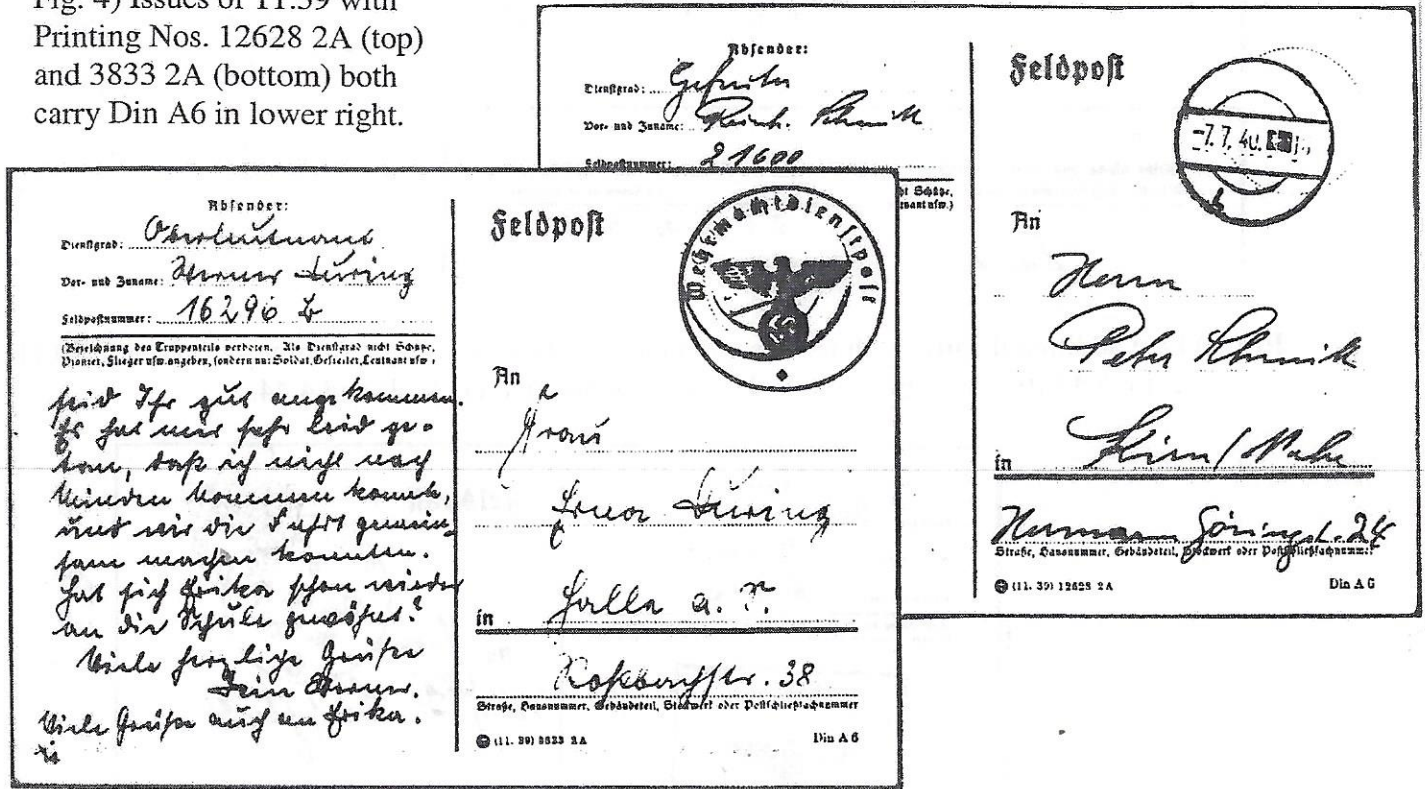 Fig. 4) Issues of 11.39 with
Printing Nos. 12628 2A (top)
and 3833 2A (bottom) both
carry Din A6 in lower right.
Absender:
Dienstgrad: Gefreiter
Vor- und Zuname: Reinh. Schmitt
Feldpostnummer: 21600
Feldpost
-7.7.40.
b
An
Herrn
Peter Schmitt
in Kirn/Nahe
Hermann Göringst. 24
Straße, Hausnummer, Gebäudeteil, Stockwerk oder Postschließfachnummer
(11. 39) 12628 2A
Din A 6
Absender:
Dienstgrad: Oberleutnant
Vor- und Zuname: Werner Düring
Feldpostnummer: 16296 B
(Bezeichnung des Truppenteils verboten. Als Dienstgrad nicht Schütze,
Pionier, Flieger usw. angeben, sondern nur: Soldat, Gefreiter, Leutnant usw.)
seid Ihr gut angekommen.
Es hat mir sehr leid ge-
tan, daß ich nicht nach
Minden kommen konnte,
und wir die Fahrt gemein-
sam machen konnten.
Hat sich Erika schon wieder
an die Schule gewöhnt?
Viele herzliche Grüße
Dein Werner.
Viele Grüße auch an Erika.
Feldpost
Wehrmachtdienstpost
An
Frau
Erna Düring
in Halle a. S.
Roßbachstr. 38
Straße, Hausnummer, Gebäudeteil, Stockwerk oder Postschließfachnummer
(11. 39) 3833 2A
Din A 6